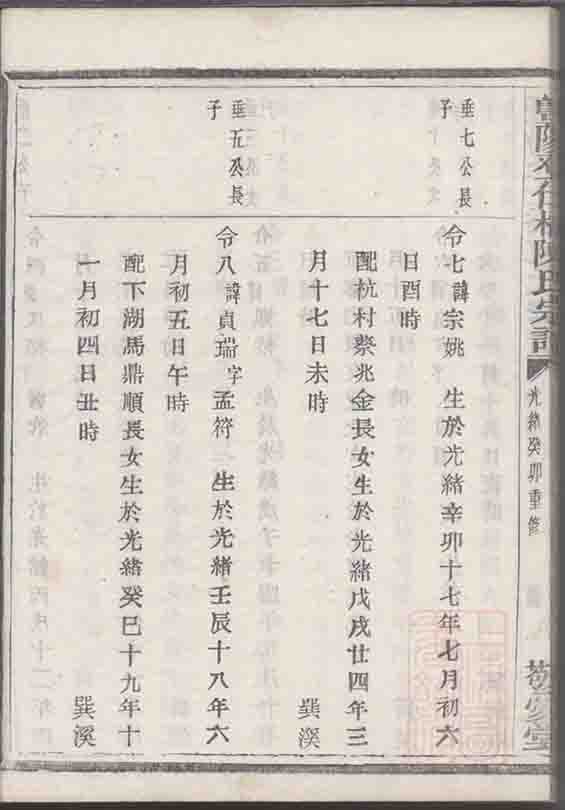 陳氏宗譜
光緒癸卯重修
垂七公長
子
令七諱宗姚 生於光緒辛卯十七年七月初六
日酉時
配杭村蔡兆金長女生於光緒戊戌廿四年三
月十七日未時
巽溪
垂五公長
子
令八諱貞瑞字孟符 生於光緒壬辰十八年六
月初五日午時
配下湖馬鼎順長女生於光緒癸巳十九年十
一月初四日丑時
巽溪